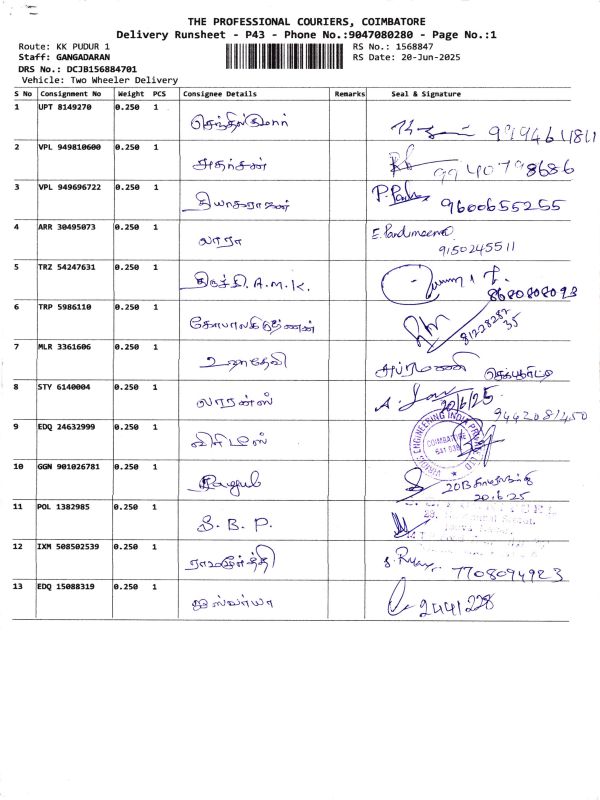 THE PROFESSIONAL COURIERS, COIMBATORE
Delivery Runsheet - P43 - Phone No.:9047080280 - Page No.:1
Route: KK PUDUR 1 RS No.: 1568847
Staff: GANGADARAN RS Date: 20-Jun-2025
DRS No.: DCJB156884701
Vehicle: Two Wheeler Delivery
S No Consignment No Weight PCS Consignee Details Remarks Seal & Signature
1 UPT 8149270 0.250 1 செந்தில்குமார்
2 VPL 949810600 0.250 1 அதர்சன் 9940798686
3 VPL 949696722 0.250 1 தியாகராஜன் 9600655255
4 ARR 30495073 0.250 1 லாரா 9150245511
5 TRZ 54247631 0.250 1 திருச்சி.A.M.K. 8680808093
6 TRP 5986110 0.250 1 கோபாலகிருஷ்ணன் 8122828735
7 MLR 3361606 0.250 1 உஷாதேவி
8 STY 6140004 0.250 1 லாரன்ஸ் 20/6/25
9 EDQ 24632999 0.250 1 COIMBATORE
10 GGN 901026781 0.250 1 20.6.25
11 POL 1382985 0.250 1 S.B.P.
12 IXM 508502539 0.250 1 ராமமூர்த்தி 7708094923
13 EDQ 15088319 0.250 1 ஐஸ்வர்யா 2441228